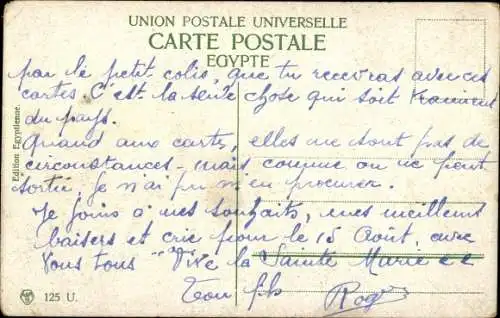 UNION POSTALE UNIVERSELLE
CARTE POSTALE
EGYPTE
par le petit colis, que tu recevras avec ces
cartes. C'est la seule chose qui soit vraiment
du pays.
Quand aux carte, elles ne sont pas de
circonstances - mais comme on ne peut
sortir, je n'ai pu m'en procurer.
Je joins à mes souhaits, mes meilleurs
baisers et crie pour le 15 Août, avec
vous tous "Vive la Sainte Marie et
Ton fils Rog
Edition Egyptienne.
125 U.